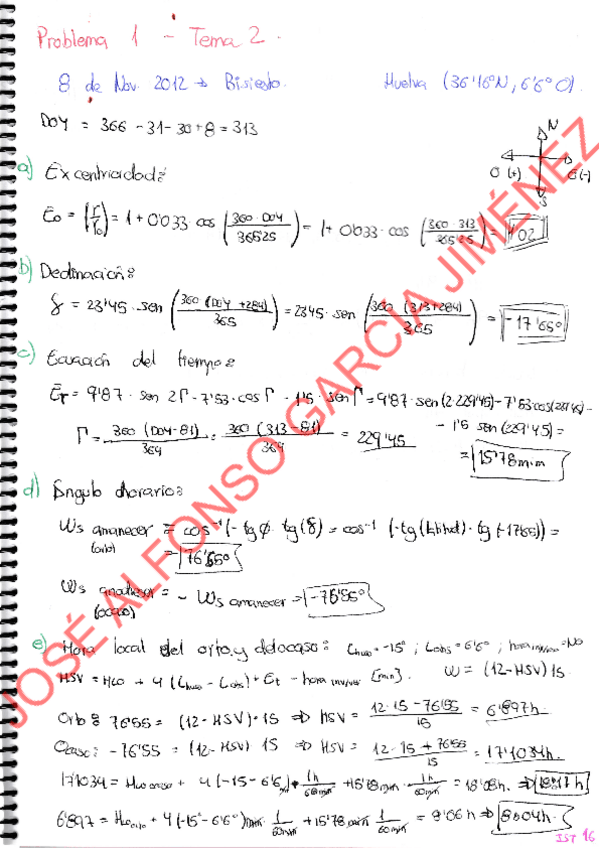 Problema 1 - Tema 2.
8 de Nov. 2012 → Bisiesto. Huelva (36'16ºN, 6'6º O).
DOY = 366 - 31 - 30 + 8 = 313
N
O (+) E (-)
S
a) Excentricidad:
E₀ = (r/r₀) = 1 + 0'033 · cos (360 · DOY / 365'25) = 1 + 0'033 · cos (360 · 313 / 365'25) = 1'02
b) Declinación:
δ = 23'45 · sen (360 (DOY + 284) / 365) = 23'45 · sen (360 (313+284) / 365) = -17'65º
c) Ecuación del tiempo:
Et = 9'87 · sen 2Γ - 7'53 · cos Γ - 1'5 · sen Γ = 9'87 · sen (2·229'45) - 7'53 cos(229'45) -
Γ = 360 (DOY - 81) / 364 = 360 (313 - 81) / 364 = 229'45 - 1'5 sen (229'45) =
= 15'78 min
d) Ángulo horario:
Ws amanecer = cos⁻¹ (- tg φ · tg (δ)) = cos⁻¹ (-tg ( ) · tg (-17'65)) =
(orto) = 76'55º
Ws = - Ws amanecer = -76'55º
(ocaso)
e) Hora local del orto y del ocaso: L huso = -15º ; L obs = 6'6º ; hora = No
HSV = HLO + 4 (L huso - L obs) + Et - hora [min]. W = (12-HSV) 15
Orto: 76'55 = (12 - HSV) · 15 ⇒ HSV = 12 · 15 - 76'55 / 15 = 6'897 h.
Ocaso: -76'55 = (12 - HSV) 15 ⇒ HSV = 12 · 15 + 76'55 / 15 = 17'1034 h.
17'1034 = HLO ocaso + 4 (-15 - 6'6) · 1h / 60 min + 15'78 min · 1h / 60 min = 18'08 h. ⇒
6'897 = HLO orto + 4 (-15º - 6'6º) min · 1 / 60 min + 15'78 min 1 / 60 min = ⇒
JOSÉ ALFONSO GARCÍA JIMÉNEZ
IST 16